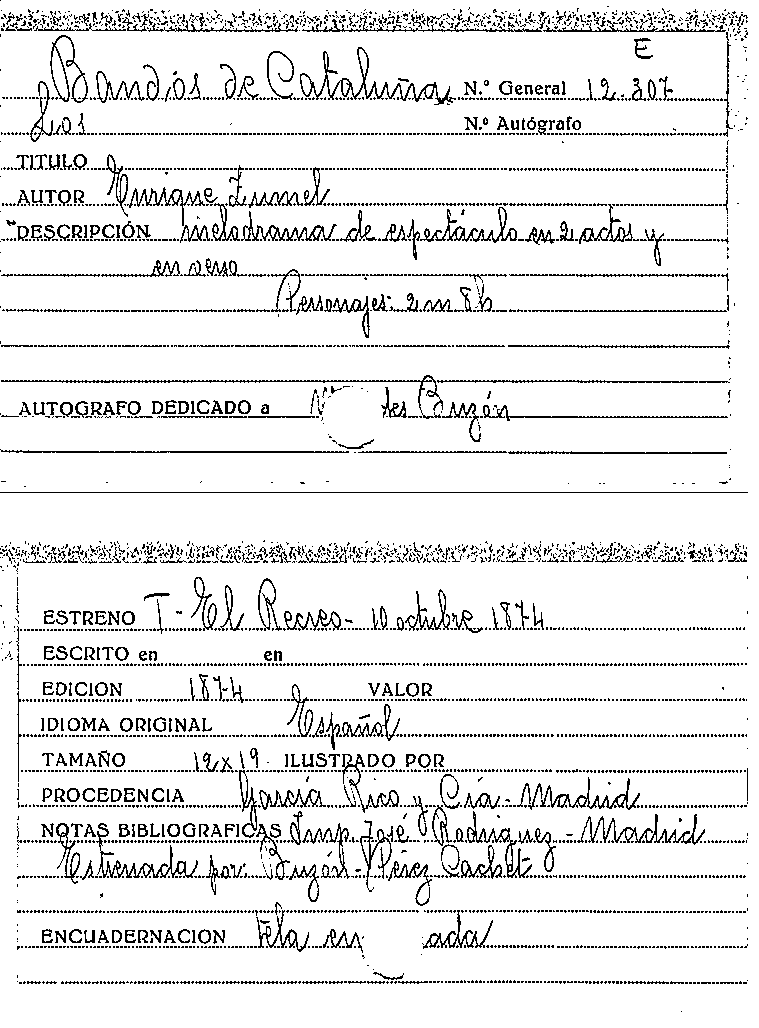 E
Bandos de Cataluña, N.º General 12.307
Los N.º Autógrafo
TITULO
AUTOR Enrique Zumel
DESCRIPCIÓN melodrama de espectáculo en 2 actos y
en verso
Personajes: 2 m 8 h
AUTOGRAFO DEDICADO a Buzón
ESTRENO T- El Recreo- 10 octubre 1874
ESCRITO en en
EDICION 1874 VALOR
IDIOMA ORIGINAL Español
TAMAÑO 12x19 ILUSTRADO POR
PROCEDENCIA García Rico y Cía - Madrid
NOTAS BIBLIOGRAFICAS Imp. José Rodriguez - Madrid
Estrenada por: Buzón - Pérez Cachet
ENCUADERNACION Tela en ada